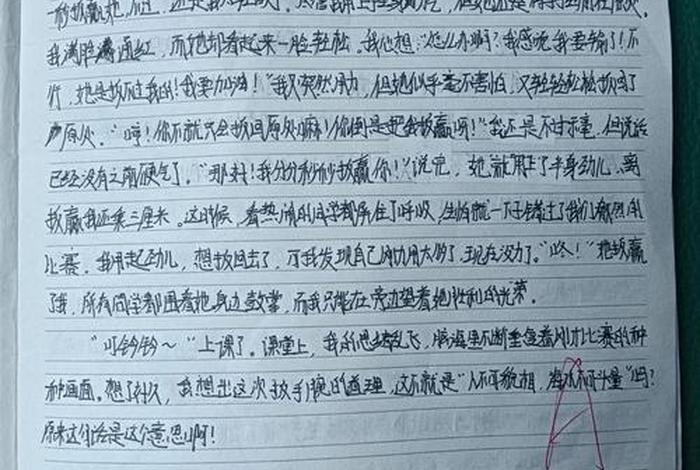 我满脸通红,而她却看起来一脸轻松。我心想:“怎么办啊?我感觉我要输了!不
行,她是扳不过我的!我要加油!”我又突然用力,但她似乎毫不害怕,又轻轻松松扳回了
原处。“哼!你不就只会扳回原处嘛!你倒是把我扳赢呀!”我还是不甘示弱,但说话
已经没有之前硬气了。“那好!我分分秒秒扳赢你!”说完,她就用上了半身劲儿,离
扳赢我还剩三厘米。这时候,看热闹的同学都屏住了呼吸,生怕就一不子错过了我们激烈的
比赛。我用起劲儿,想扳回去了,可我发现自己刚才用力太多了,现在没力了。“咚!”她扳赢
了我,所有同学都围着她身边鼓掌,而我只能在旁边望着她胜利的光荣。
“叮铃铃~”上课了。课堂上,我的思绪乱飞,脑海里不断重复着刚才比赛的种
种画面。想了好久,我想出这次扳手腕的道理,这不就是“人不可貌相,海水不可斗量”吗?
原来这句话是这个意思啊!